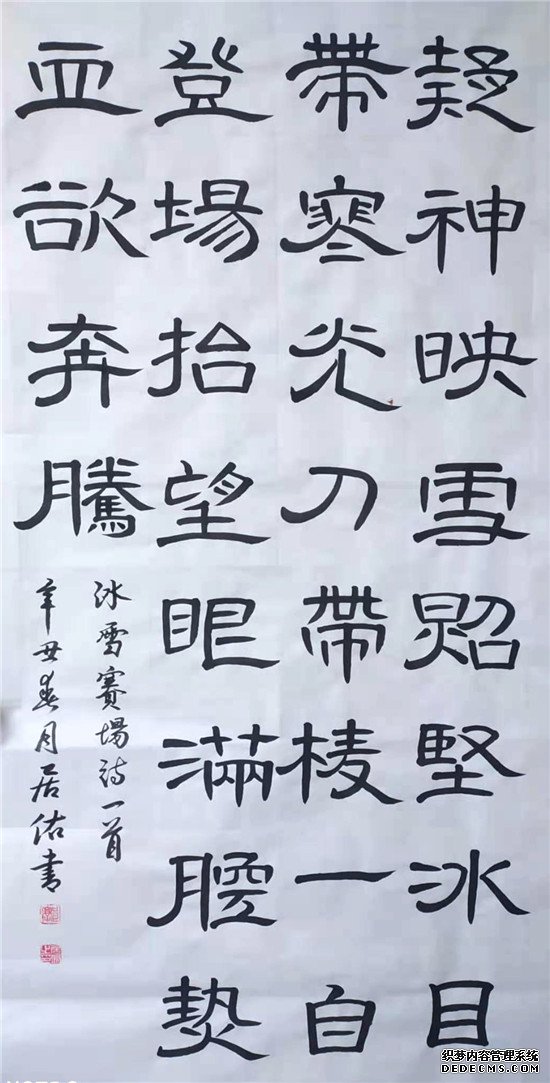 疑神映雪照堅冰目
帶寒光刀帶棱一自
登場抬望眼滿腔熱
血欲奔騰
冰雪賽場詩一首
辛丑春月居佑書
织梦内容管理系统
DEDECMS.COM